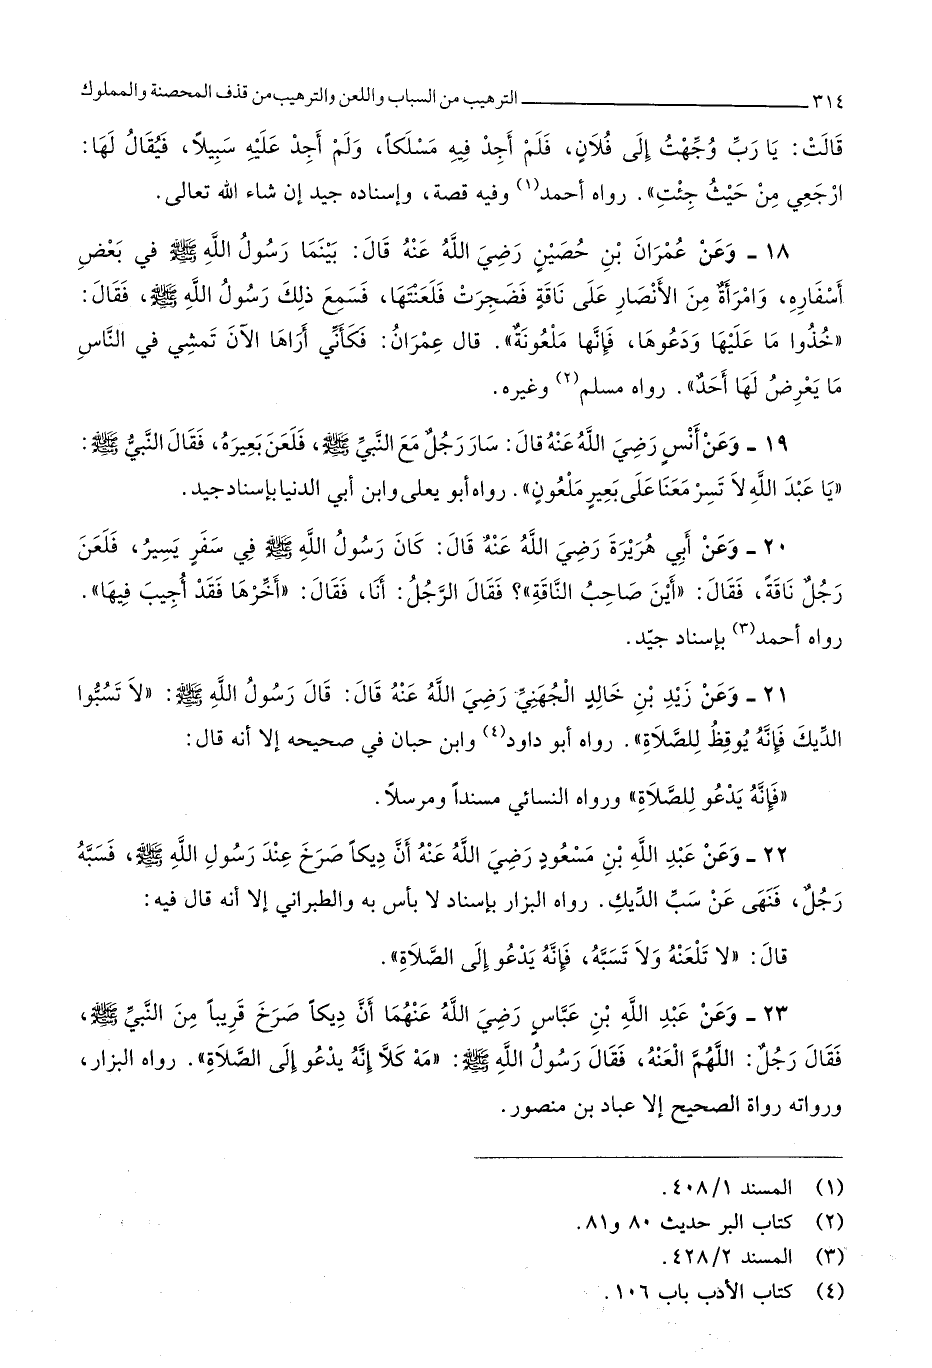 ٣١٤ ــــــــــــــــ الترهيب من السباب واللعن والترهيب من قذف المحصنة والمملوك
قَالَتْ: يَا رَبِّ وُجِّهْتُ إِلَى فُلَانٍ، فَلَمْ أَجِدْ فِيهِ مَسْلَكاً، وَلَمْ أَجِدْ عَلَيْهِ سَبِيلاً، فَيُقَالُ لَهَا:
ارْجَعِي مِنْ حَيْثُ جِئْتِ». رواه أحمد(١) وفيه قصة، وإسناده جيد إن شاء الله تعالى.
١٨ ـ وَعَنْ عُمْرَانَ بْنِ حُصَيْنٍ رَضِيَ اللَّهُ عَنْهُ قَالَ: بَيْنَمَا رَسُولُ اللَّهِ ﷺ في بَعْضِ
أَسْفَارِهِ، وَامْرَأَةٌ مِنَ الأَنْصَارِ عَلَى نَاقَةٍ فَضَجِرَتْ فَلَعَنَتَهَا، فَسَمِعَ ذلِكَ رَسُولُ اللَّهِ ﷺ، فَقَالَ:
«خُذُوا مَا عَلَيْهَا وَدَعُوهَا، فَإِنَّها مَلْعُونَةٌ». قال عِمْرَانُ: فَكَأَنِّي أَرَاهَا الآنَ تَمشِي في النَّاسِ
مَا يَعْرِضُ لَهَا أَحَدٌ». رواه مسلم(٢) وغيره.
١٩ ـ وَعَنْ أَنْسٍ رَضِيَ اللَّهُ عَنْهُ قالَ: سَارَ رَجُلٌ مَعَ النَّبِيِّ ﷺ، فَلَعَنَ بَعِيرَهُ، فَقَالَ النَّبِيُّ ﷺ:
«يَا عَبْدَ اللَّهِ لَا تَسِرْ مَعَنَا عَلَى بَعِيرٍ مَلْعُونٍ». رواه أبو يعلى وابن أبي الدنيا بإسناد جيد.
٢٠ ـ وَعَنْ أَبِي هُرَيْرَةَ رَضِيَ اللَّهُ عَنْهُ قَالَ: كَانَ رَسُولُ اللَّهِ ﷺ فِي سَفَرٍ يَسِيرُ، فَلَعَنَ
رَجُلٌ نَاقَةً، فَقَالَ: «أَيْنَ صَاحِبُ النَّاقَةِ»؟ فَقَالَ الرَّجُلُ: أَنَا، فَقَالَ: «أَخِّرْهَا فَقَدْ أُجِيبَ فِيهَا».
رواه أحمد(٣) بإسناد جيّد.
٢١ ـ وَعَنْ زَيْدِ بْنِ خَالِدٍ الْجُهَنِيِّ رَضِيَ اللَّهُ عَنْهُ قَالَ: قَالَ رَسُولُ اللَّهِ ﷺ: «لَا تَسُبُّوا
الدِّيكَ فَإِنَّهُ يُوقِظُ لِلصَّلَاةِ». رواه أبو داود(٤) وابن حبان في صحيحه إلا أنه قال:
«فَإِنَّهُ يَدْعُو لِلصَّلَاةِ» ورواه النسائي مسنداً ومرسلاً.
٢٢ ـ وَعَنْ عَبْدِ اللَّهِ بْنِ مَسْعُودٍ رَضِيَ اللَّهُ عَنْهُ أَنَّ دِيكاً صَرَخَ عِنْدَ رَسُولِ اللَّهِ ﷺ، فَسَبَّهُ
رَجُلٌ، فَنَهَى عَنْ سَبِّ الدِّيكِ. رواه البزار بإسناد لا بأس به والطبراني إلا أنه قال فيه:
قالَ: «لا تَلْعَنْهُ وَلَا تَسَبَّهُ، فَإِنَّهُ يَدْعُو إِلَى الصَّلَاةِ».
٢٣ ـ وَعَنْ عَبْدِ اللَّهِ بْنِ عَبَّاسٍ رَضِيَ اللَّهُ عَنْهُمَا أَنَّ دِيكاً صَرَخَ قَرِيباً مِنَ النَّبِيِّ ﷺ،
فَقَالَ رَجُلٌ: اللَّهُمَّ الْعَنْهُ، فَقَالَ رَسُولُ اللَّهِ ﷺ: «مَهْ كَلَّا إِنَّهُ يدْعُو إِلَى الصَّلَاةِ». رواه البزار،
ورواته رواة الصحيح إلا عباد بن منصور.
(١) المسند ٤٠٨/١.
(٢) كتاب البر حديث ٨٠ و٨١.
(٣) المسند ٤٢٨/٢.
(٤) كتاب الأدب باب ١٠٦.